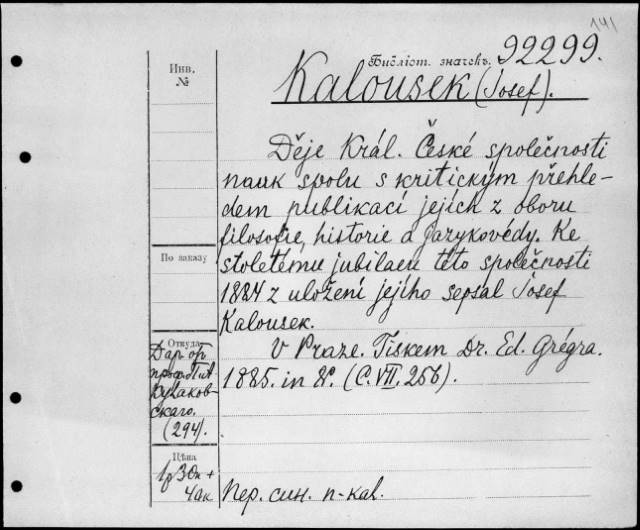 141
Библіот. значекъ. 92299.
Инв.
№
Kalousek (Josef).
Děje Král. České společnosti
nauk spolu s kritickým přehle-
dem publikací jejích z oboru
filosofie, historie a jazykovědy. Ke
stoletému jubilaeu této společnosti
1884 z uložení jejího sepsal Josef
Kalousek.
V Praze. Tiskem Dr. Ed. Grégra.
1885. in 8°. (C. VII, 256).
По заказу
Откуда
Даръ отъ
Кулаков-
скаго.
(294).
Цѣна
1р 30к +
40к
Пер. син. п-кал.